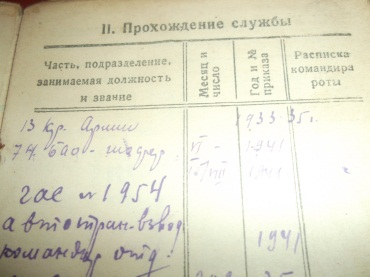 II. Прохождение службы
Часть, подразделение, занимаемая должность и звание
Месяц и число
Год и № приказа
Расписка командира роты
13 кур. Армии 1933-35г.
74. бао - шофер VI - 1941
VII 1941
гос № 1954
автотран-взвод
командир отд. 1941